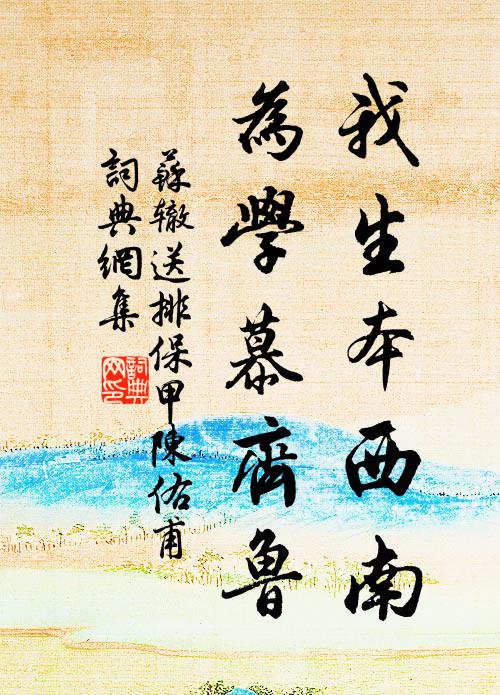 我生本西南
為學慕齊魯
蘇轍送排保甲陳佑甫
詞典網集
詞典
网印